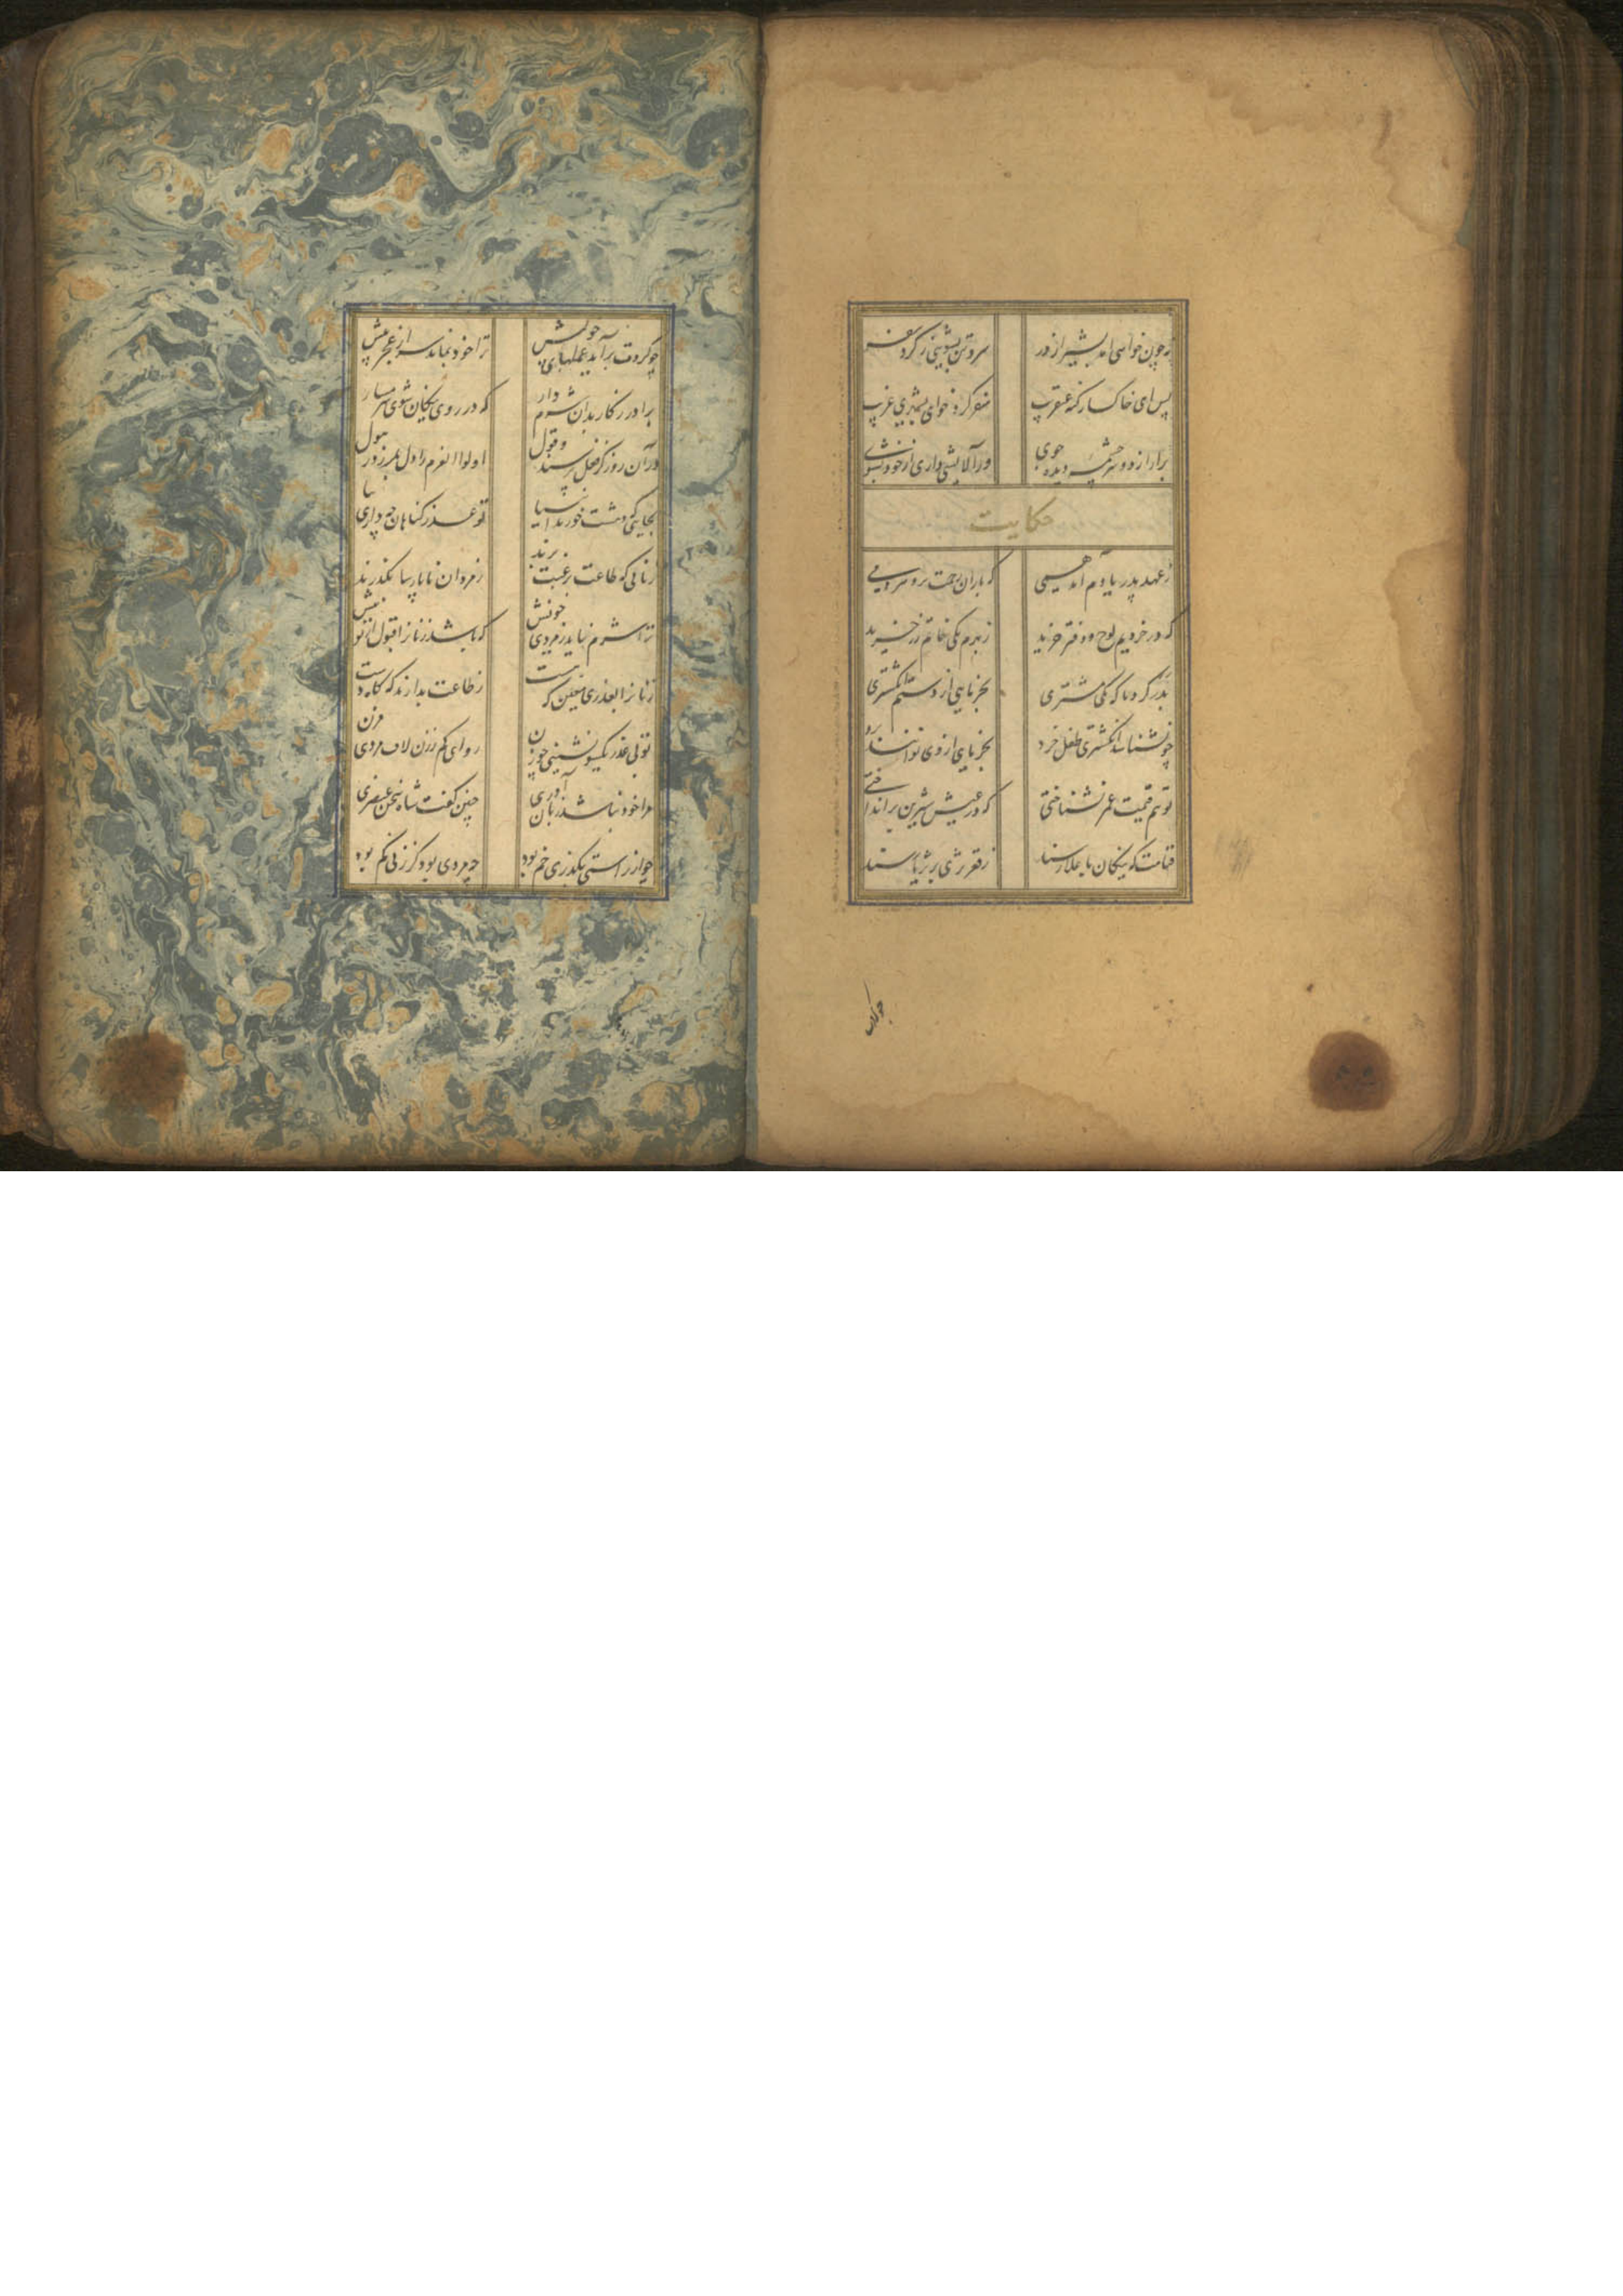 نه چون خواهی آمد بشیراز در سر و تن بشویی ز گرد سفر
پس ای خاکسار گنه عنقریب سفر کرد خواهی بشهری غریب
بران از دو سرچشمه دیده جوی ور آلایشی داری از خود بشوی
حکایت
ز عهد پدر یادم آمد همی که باران رحمت برو هر دمی
که در خردیم لوح و دفتر خرید ز بهرم یکی خاتم زر خرید
بدر کرد ناگه یکی مشتری بخرمایی از دستم انگشتری
چو نشناسد انگشتری طفل خرد بخرمایی از وی توانند برد
تو هم قیمت عمر نشناختی که در عیش شیرین برانداختی
قیامت که نیکان باعلا رسند ز قعر ثری بر ثریا رسند
چو کردت
چو کردت برآید عملهای خویش ترا خود نماند سر از عجز پیش
برادر ز کار بدان شرم دار که در روی نیکان شوی شرمسار
در آن روز کز فعل پرسند و قول اولوا العزم را دل بلرزد ز هول
بجایی که دهشت خورند انبیا تو عذر گناهان چه داری بیا
زنانی که طاعت برغبت برند ز مردان ناپارسا بگذرند
ترا شرم ناید ز مردی خویش که باشد زنانرا قبول از تو بیش
زنانرا بعذری معین که هست ز طاعت بدارند گه گاه دست
تو بی عذر یکسو نشینی چو زن رو ای کم ز زن لاف مردی مزن
مرا خود نباشد زبان آوری چنین گفت شاه سخن عنصری
چو از راستی بگذری خم بود چه مردی بود کز زنی کم بود